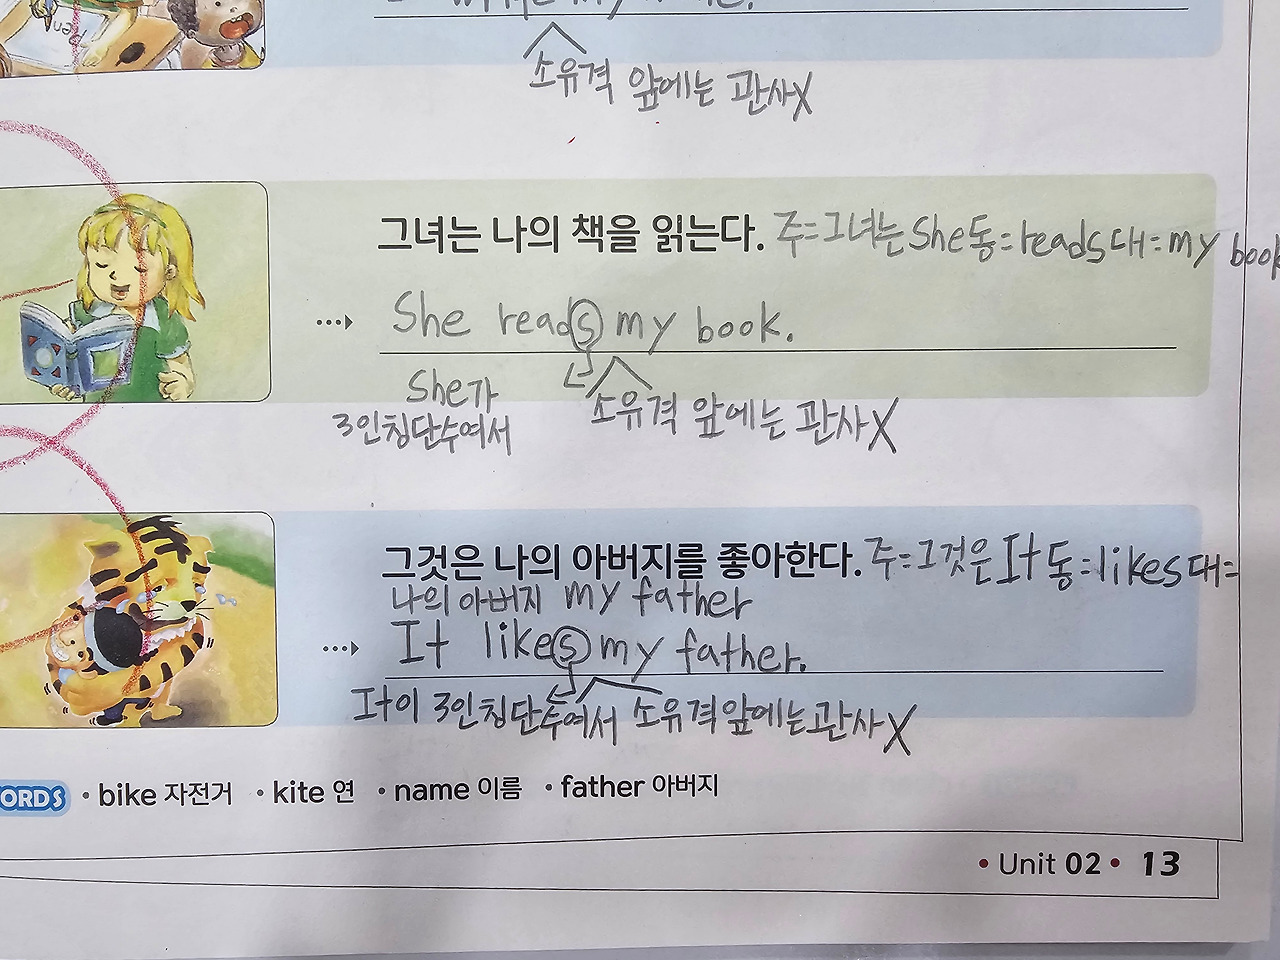 소유격 앞에는 관사X
그녀는 나의 책을 읽는다. 주=그녀는 She 동=reads 대=my book
She reads my book.
She가
3인칭단수여서
소유격 앞에는 관사X
그것은 나의 아버지를 좋아한다. 주=그것은 It 동=likes 대=
나의 아버지 my father
It likes my father.
It이 3인칭단수여서 소유격 앞에는 관사X
ORDS • bike 자전거 • kite 연 • name 이름 • father 아버지
• Unit 02 • 13